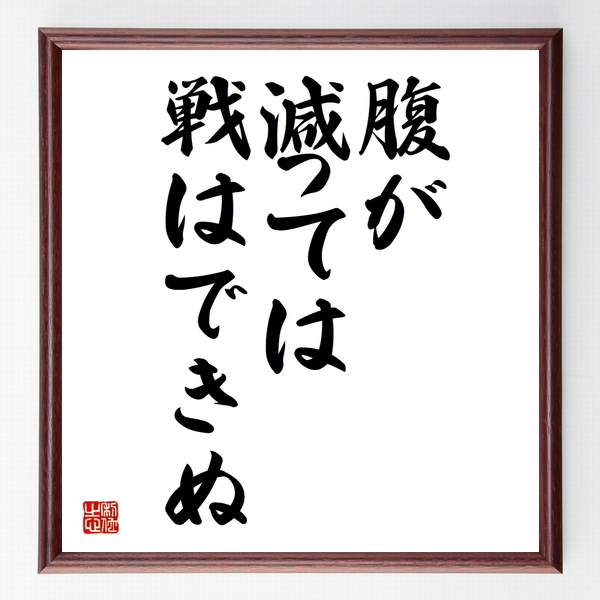 腹が
減っては
戦はできぬ